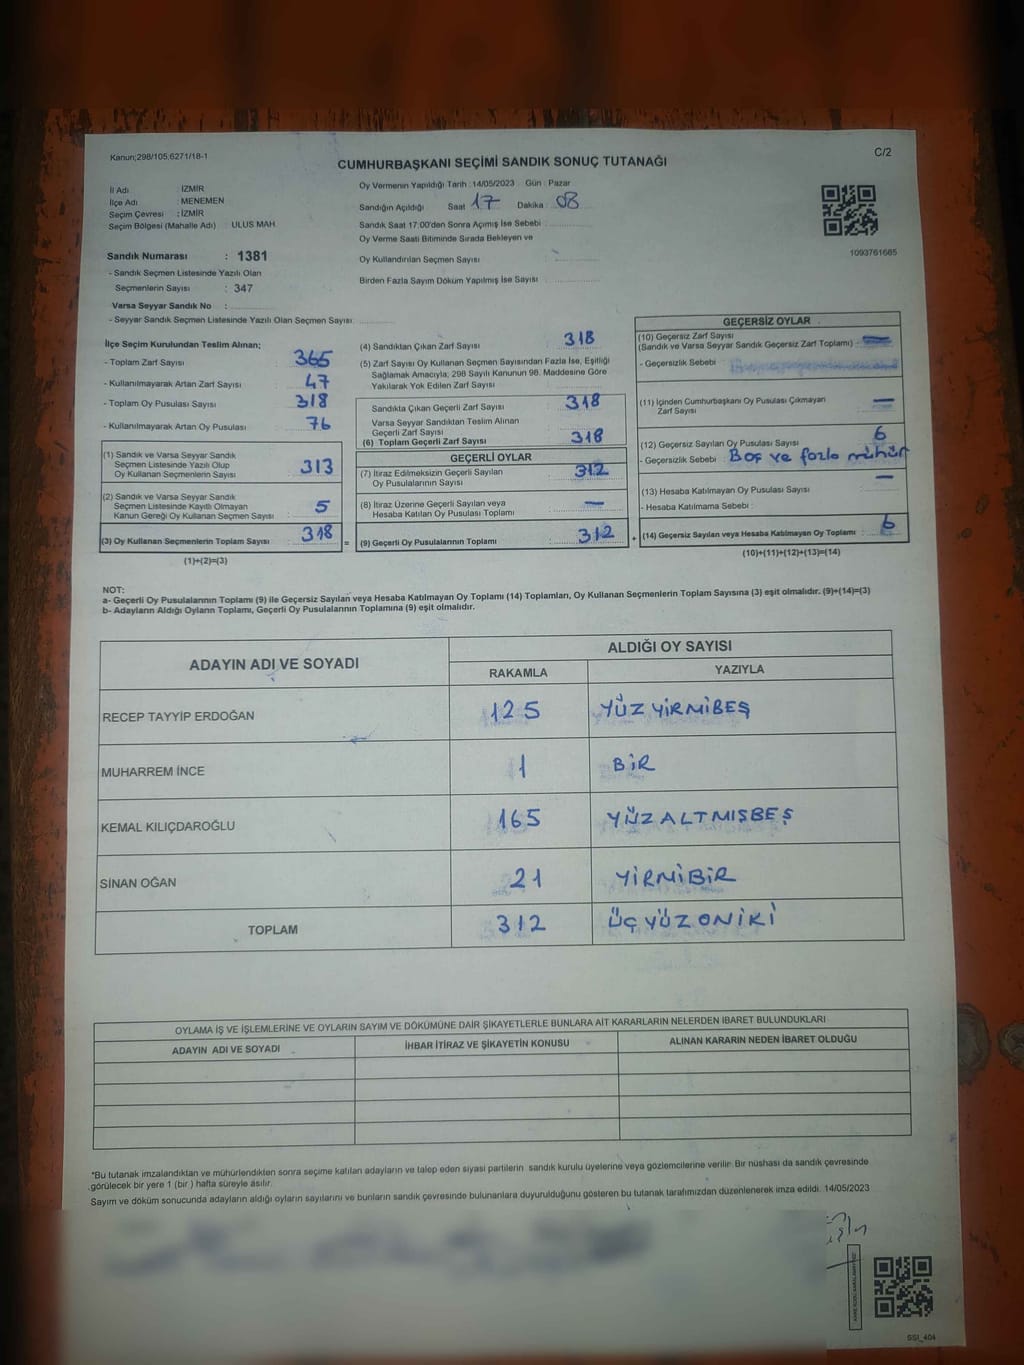 Kanun;298/105,6271/18-1
C/2
CUMHURBAŞKANI SEÇİMİ SANDIK SONUÇ TUTANAĞI
İl Adı : İZMİR
İlçe Adı : MENEMEN
Seçim Çevresi : İZMİR
Seçim Bölgesi (Mahalle Adı) : ULUS MAH.
Oy Vermenin Yapıldığı Tarih : 14/05/2023 Gün : Pazar
Sandığın Açıldığı Saat 17 Dakika : 08
Sandık Saat 17:00'den Sonra Açımış İse Sebebi :
Oy Verme Saati Bitiminde Sırada Bekleyen ve
Oy Kullandırılan Seçmen Sayısı :
Birden Fazla Sayım Döküm Yapılmış İse Sayısı :
1093761665
Sandık Numarası : 1381
- Sandık Seçmen Listesinde Yazılı Olan
Seçmenlerin Sayısı : 347
Varsa Seyyar Sandık No :
- Seyyar Sandık Seçmen Listesinde Yazılı Olan Seçmen Sayısı:
İlçe Seçim Kurulundan Teslim Alınan;
- Toplam Zarf Sayısı : 365
- Kullanılmayarak Artan Zarf Sayısı : 47
- Toplam Oy Pusulası Sayısı : 318
- Kullanılmayarak Artan Oy Pusulası : 76
(1) Sandık ve Varsa Seyyar Sandık
Seçmen Listesinde Yazılı Olup
Oy Kullanan Seçmenlerin Sayısı : 313
(2) Sandık ve Varsa Seyyar Sandık
Seçmen Listesinde Kayıtlı Olmayan
Kanun Gereği Oy Kullanan Seçmen Sayısı : 5
(3) Oy Kullanan Seçmenlerin Toplam Sayısı : 318 =
(1)+(2)=(3)
(4) Sandıktan Çıkan Zarf Sayısı : 318
(5) Zarf Sayısı Oy Kullanan Seçmen Sayısından Fazla İse, Eşitliği
Sağlamak Amacıyla; 298 Sayılı Kanunun 98. Maddesine Göre
Yakılarak Yok Edilen Zarf Sayısı :
Sandıkta Çıkan Geçerli Zarf Sayısı : 318
Varsa Seyyar Sandıktan Teslim Alınan
Geçerli Zarf Sayısı :
(6) Toplam Geçerli Zarf Sayısı : 318
GEÇERLİ OYLAR
(7) İtiraz Edilmeksizin Geçerli Sayılan
Oy Pusulalarının Sayısı : 312
(8) İtiraz Üzerine Geçerli Sayılan veya
Hesaba Katılan Oy Pusulası Toplamı : —
(9) Geçerli Oy Pusulalarının Toplamı : 312 +
GEÇERSİZ OYLAR
(10) Geçersiz Zarf Sayısı
(Sandık ve Varsa Seyyar Sandık Geçersiz Zarf Toplamı) : —
- Geçersizlik Sebebi :
(11) İçinden Cumhurbaşkanı Oy Pusulası Çıkmayan
Zarf Sayısı : —
(12) Geçersiz Sayılan Oy Pusulası Sayısı : 6
- Geçersizlik Sebebi : Boş ve fazla mühür
(13) Hesaba Katılmayan Oy Pusulası Sayısı : —
- Hesaba Katılmama Sebebi :
(14) Geçersiz Sayılan veya Hesaba Katılmayan Oy Toplamı : 6
(10)+(11)+(12)+(13)=(14)
NOT:
a- Geçerli Oy Pusulalarının Toplamı (9) ile Geçersiz Sayılan veya Hesaba Katılmayan Oy Toplamı (14) Toplamları, Oy Kullanan Seçmenlerin Toplam Sayısına (3) eşit olmalıdır. (9)+(14)=(3)
b- Adayların Aldığı Oyların Toplamı, Geçerli Oy Pusulalarının Toplamına (9) eşit olmalıdır.
ADAYIN ADI VE SOYADI
ALDIĞI OY SAYISI
RAKAMLA YAZIYLA
RECEP TAYYİP ERDOĞAN 125 YÜZ YİRMİBEŞ
MUHARREM İNCE 1 BİR
KEMAL KILIÇDAROĞLU 165 YÜZ ALTMIŞBEŞ
SİNAN OĞAN 21 YİRMİBİR
TOPLAM 312 ÜÇ YÜZ ONİKİ
OYLAMA İŞ VE İŞLEMLERİNE VE OYLARIN SAYIM VE DÖKÜMÜNE DAİR ŞİKAYETLERLE BUNLARA AİT KARARLARIN NELERDEN İBARET BULUNDUKLARI
ADAYIN ADI VE SOYADI İHBAR İTİRAZ VE ŞİKAYETİN KONUSU ALINAN KARARIN NEDEN İBARET OLDUĞU
*Bu tutanak imzalandıktan ve mühürlendikten sonra seçime katılan adayların ve talep eden siyasi partilerin sandık kurulu üyelerine veya gözlemcilerine verilir. Bir nüshası da sandık çevresinde
görülecek bir yere 1 (bir ) hafta süreyle asılır.
Sayım ve döküm sonucunda adayların aldığı oyların sayılarını ve bunların sandık çevresinde bulunanlara duyurulduğunu gösteren bu tutanak tarafımızdan düzenlenerek imza edildi. 14/05/2023
SSİ_404